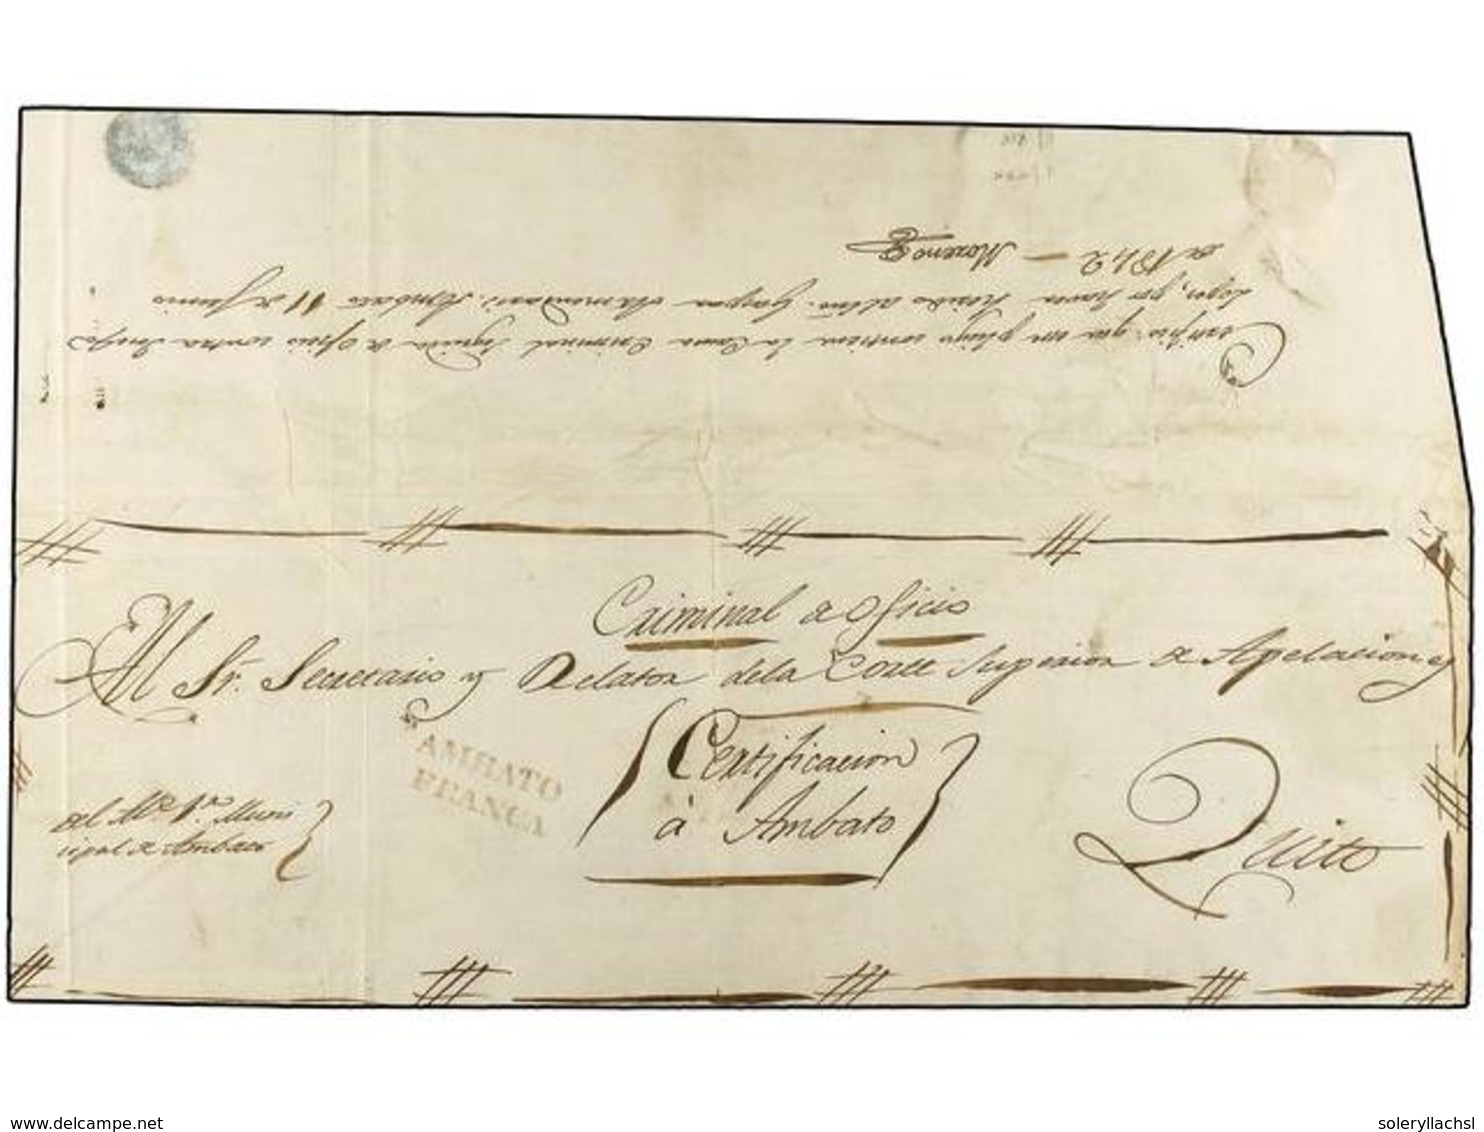 Certifico que en pliego contiene la Causa Criminal seguida de Oficio contra Diego
Lopes, por haver herido al Ind.
Ambato 11 de Junio
de 1842 — Moreno
Criminal de Oficio
Al Sr. Secretario y Relator dela Corte Superior de Apelacion
AMBATO
FRANCA
Certificacion
à Ambato
Quito
del
cipal de Ambato
www.delcampe.net
soleryllachsl